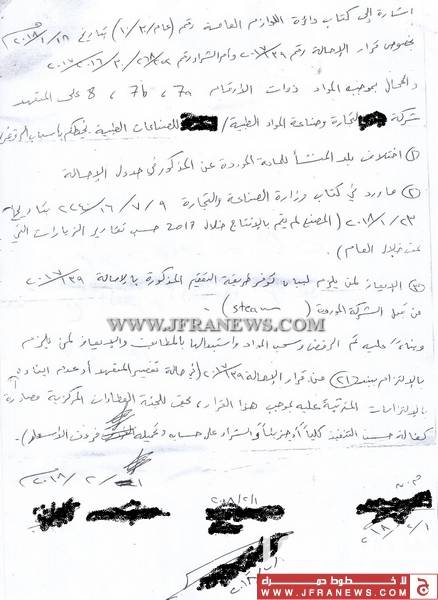 اشارة إلى كتاب دائرة اللوازم العامة رقم (عام/٣/١) تاريخ ٢٠١٨/١/٢٨
بخصوص قرار الإحالة رقم ٢٠١٧/٣٩ وأمر الشراء رقم
والمحال بموجبه المواد ذوات الأرقام 7a ، 7b ، 8 على المتعهد
شركة للتجارة وصناعة المواد الطبية / للصناعات الطبية. نحيطكم بأسباب الرفض
① اختلاف بلد المنشأ للمادة الموردة عن المذكور في جدول الإحالة
② ما ورد في كتاب وزارة الصناعة والتجارة ٩ / ٧ / ١٦ / ٢٢٤٠ بتاريخ
٢٠١٨/١/٢٣ (المصنع لم يقم بالإنتاج خلال 2017 حسب تقارير الزيارات التي
تمت خلال العام).
③ الإيعاز لمن يلزم لبيان توفر طريقة التعقيم المذكورة بالاحالة ٢٠١٧/٣٩
من قبل الشركة الموردة (steam).
WWW.JFRANEWS.COM
وبناءً عليه تم الرفض وسحب المواد واستبدالها بالمطابق والإيعاز لمن يلزم
بالإلتزام ببند (٢٦) من قرار الإحالة ٢٠١٧/٣٩ (في حالة تقصير المتعهد أو عدم ايفاءه
بالإلتزامات المترتبة عليه بموجب هذا القرار، يحق للجنة العطاءات المركزية مصادرة
كفالة حسن التنفيذ كلياً أو جزئياً والشراء على حسابه وتحميله فروق الأسعار).
٢٠١٨/٢/١
٢٠١٨/٢/١
٢٠١٨/٢/١
لا خطوط حمراء
WWW.JFRANEWS.COM